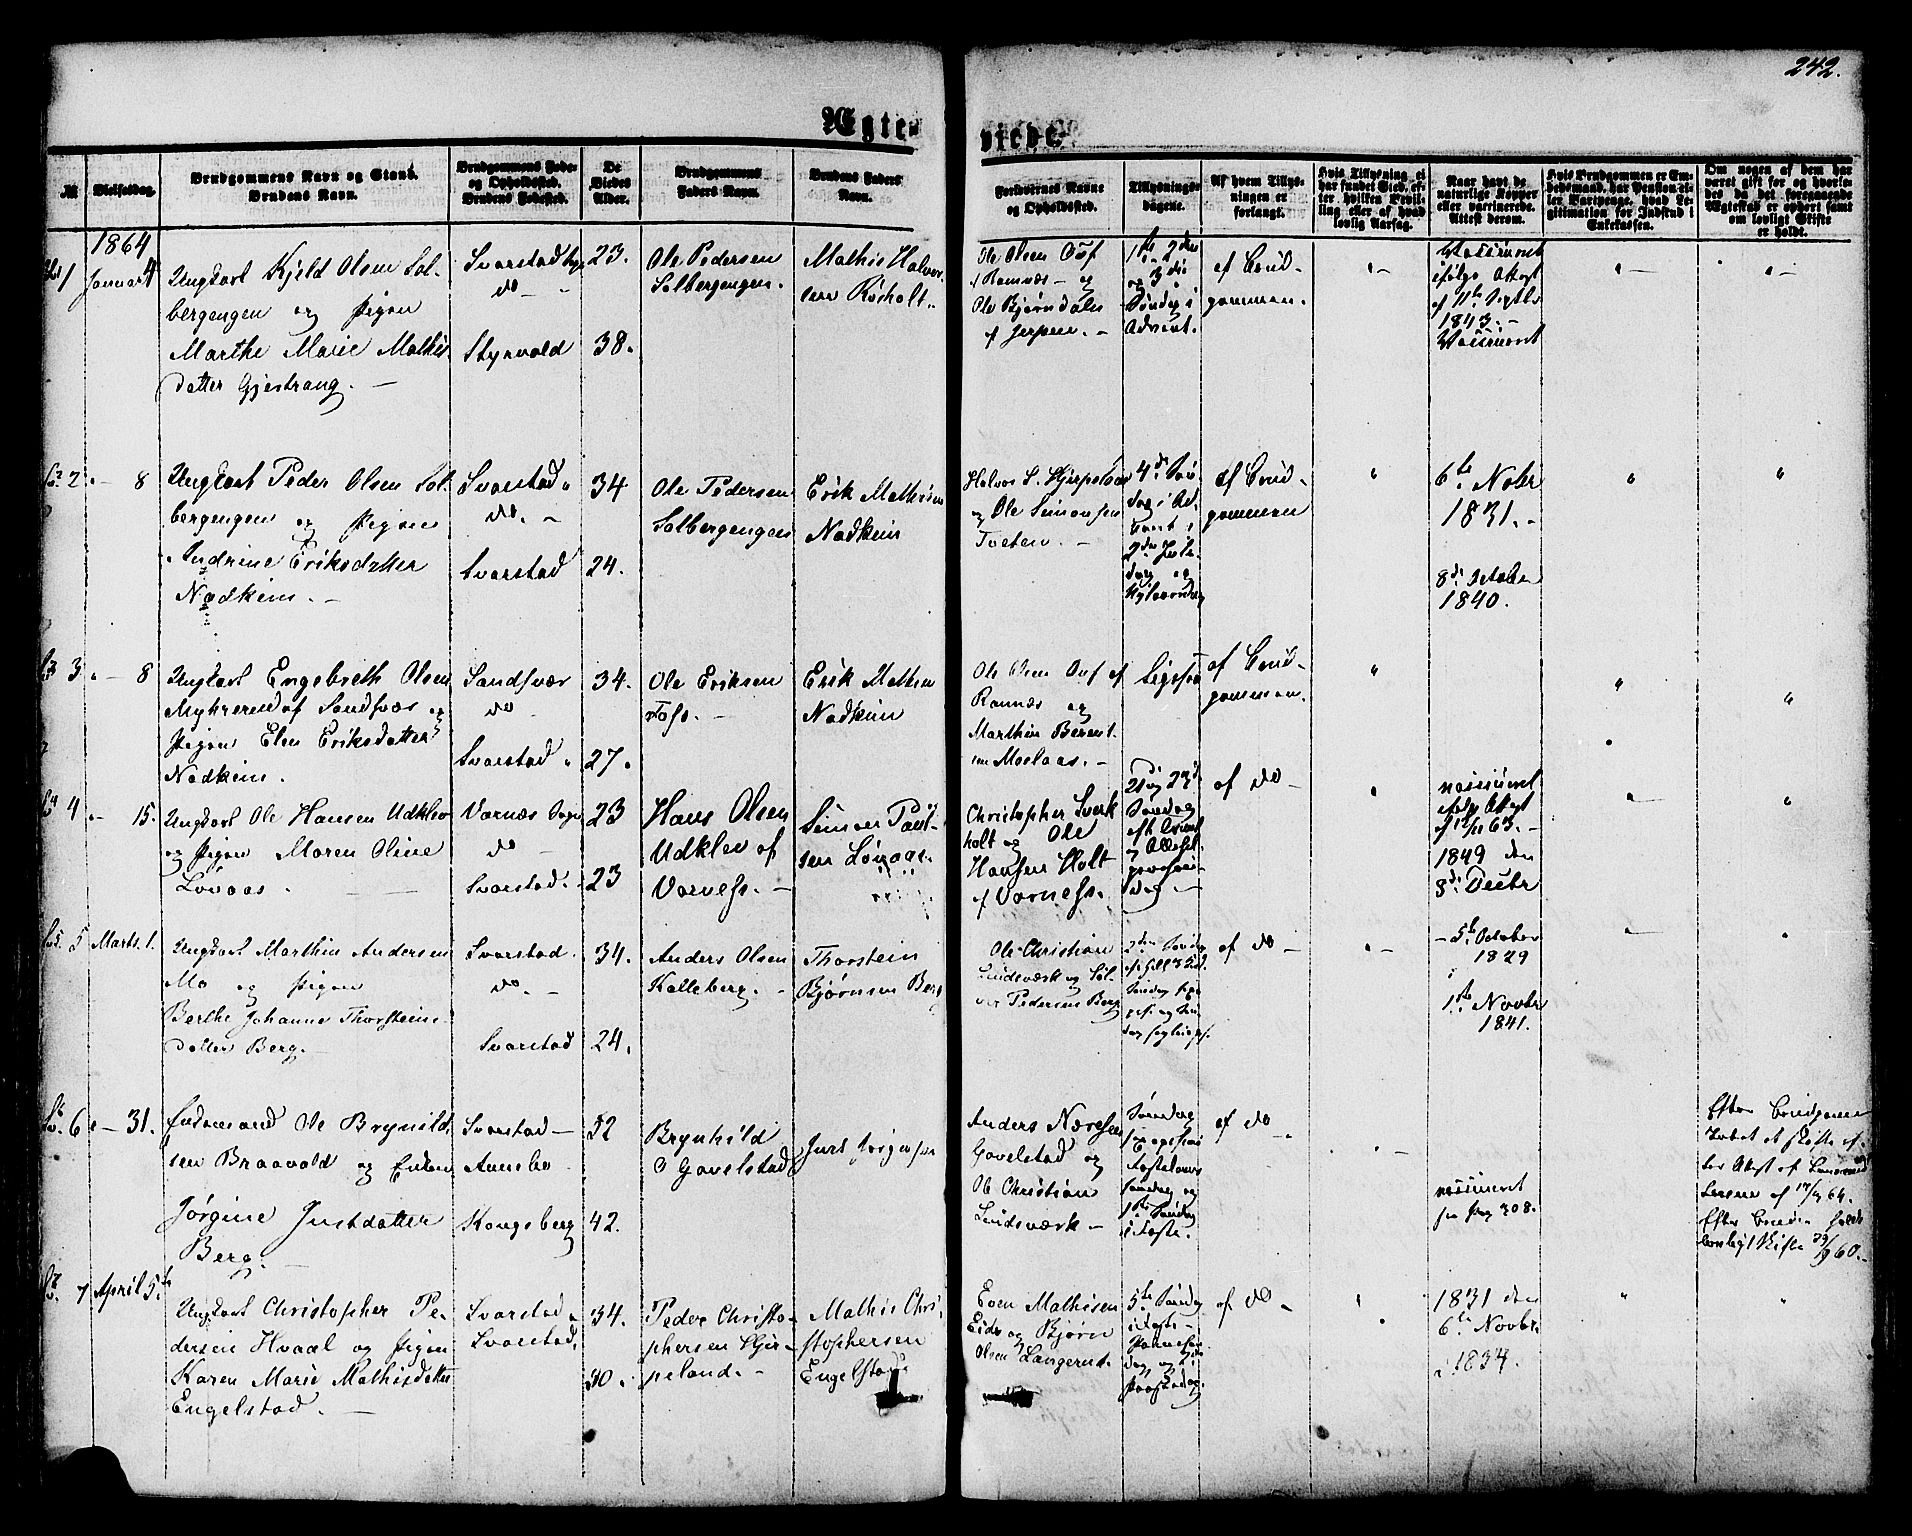 242.
Ægte-
viede.
№
Vielsesdag.
Brudgommens Navn og Stand.
Brudens Navn.
Brudgommens Føde-
og Opholdssted.
Brudens Fødested.
De
Viedes
Alder.
Brudgommens
Faders Navn.
Brudens Faders
Navn.
Forlovernes Navne
og Opholdssted.
Tillysnings-
dagene.
Af hvem Tillys-
ningen er
forlangt.
Hvis Tillysning ei
har fundet Sted, ef-
ter hvilken Bevil-
ling eller af hvad
lovlig Aarsag.
Naar havt de
naturlige Kopper
eller vaccinerede.
Attest derom.
Hvis Brudgommen er Em-
bedsmand, har Pension el-
ler Vartpenge, hvad Le-
gitimation for Indskud i
Enkekassen.
Om nogen af dem har
været gift før og hvorle-
des da det foregaaende
Ægteskab er ophørt samt
om lovligt Skifte
er holdt.
1864
1
Januar 4
Ungkarl Kjeld Olsen Sol-
bergengen og Pigen
Marthe Marie Mathis-
datter Gjestrang. —
Svarstad
do —
Styrvold
23.
38.
Ole Pedersen
Solbergengen.
Mathis Halvor-
sen Røsholt.
Ole Olsen
af Ramnæs — og
Ole Bjørndalen
af Jerpen. —
1ste 2den
og 3die
Søndag i
Advent.
af Brud-
gommen.
Vaccineret
ifølge Attest
af 11te Septbr
1843. —
Vaccineret
2
" — 8
Ungkarl Peder Olsen Sol-
bergengen og Pigen
Andrine Eriksdatter
Nadkim. —
Svarstad
do. —
Svarstad
34
24.
Ole Pedersen
Solbergengen
Erik Mathisen
Nadkim
og Ole Simonsen
Tveten. —
4de Søn-
dag i Ad-
vent
2den Jule-
dag og
Nytaarsdag
af Brud-
gommen
6te Novbr
1831. -
8de October
1840.
3
" — 8
Ungkarl Engebreth Olsen
Myhrene af Sandsvær og
Pigen Elen Eriksdatter
Nadkim.
Sandsvær
do —
Svarstad
34.
27.
Ole Eriksen
Foss. —
Erik Mathisen
Nadkim
Ole Olsen af
Ramnæs og
Mathias Berent-
sen Moelaas. —
Ligesaa
af Brud-
gommen.
4
" — 15.
Ungkarl Ole Hansen Udklev
og Pigen Maren Oline
Løvaas. —
Varnæs Sogn
do —
Svarstad.
23
23
Hans Olsen
Udklev af
Varness. —
Simen Paul-
sen Løvaas.
Christopher Sverk-
holt og Ole
Hansen Holt
af Varness.
af do —
vaccineret
ifølge Attest
af 12/11 63. —
1849 den
8de Decbr
5
Marts. 1.
Ungkarl Marthin Andersen
Mo og Pigen
Berthe Johanne Thorsteins-
datter Berg. —
Svarstad
do. —
Svarstad
34.
24.
Anders Olsen
Kalleberg. —
Thorstein
Bjørnsen Berg
Ole Christian
Lindsværk og
Pedersen Berg
af do —
5te October
1829
1ste Novbr
1841.
6
" — 31.
Enkemand Ole Brynild-
sen Braavold og Enken
Jørgine Justdatter
Berg. —
Svarstad —
Kongsberg
52
42.
Brynhild
Gavelstad
Just Jørgensen
Anders Næresen
Gavelstad og
Ole Christian
Lindsværk —
Søndag
Fastelavns
søndag og
1ste Søndag
i Faste.
af do
vaccineret
Pag 308.
7
April 5te
Ungkarl Christopher Pe-
dersen Hvaal og Pigen
Karen Marie Mathisdatter
Engelstad. —
Svarstad
Svarstad.
34.
30.
Peder Christo-
phersen Hjer-
peland. —
Mathis Chri-
stophersen
Engelstad
Even Mathisen
Eide og Bjørn
Olsen Langerud.
5te Søndag
i Faste —
Palmesøn-
dag og
Paaskedag.
af do —
1831 den
6te Novbr.
1834.